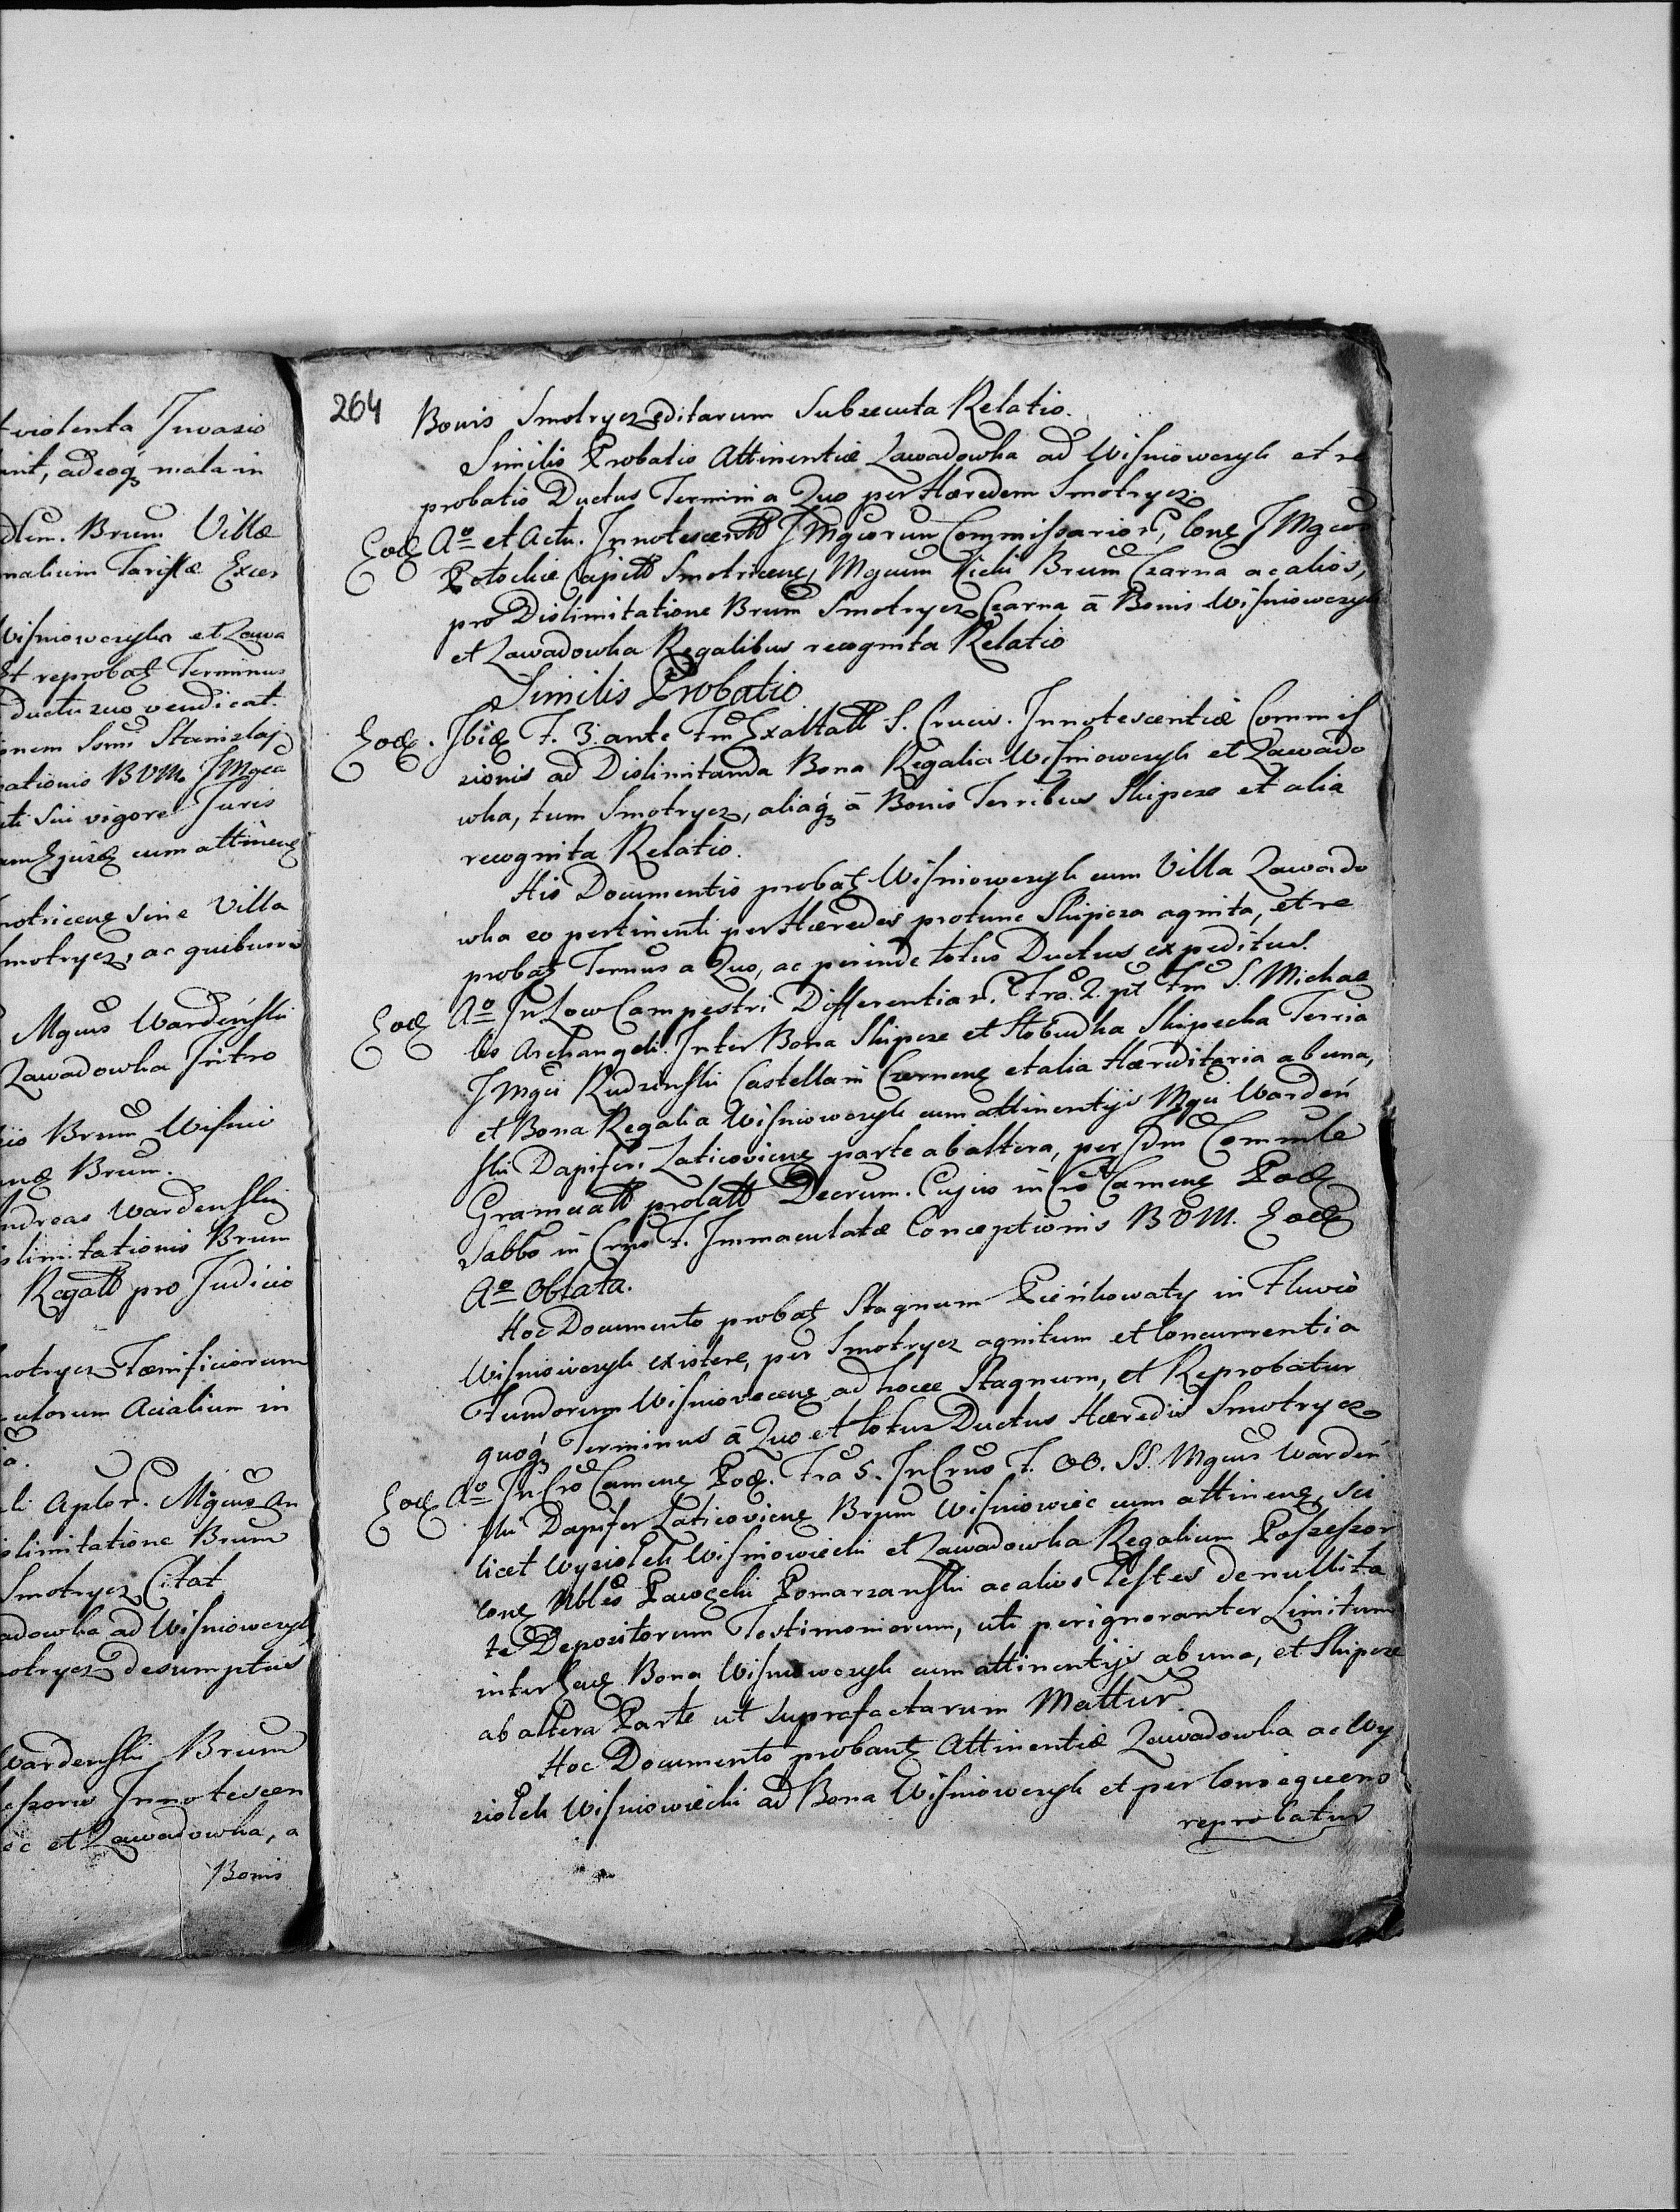 t violenta Invasio
unt, adeoq mala in
Brum Villæ
nalium Tariffæ Excer
Wiſniowczyka et Zawa
Et reprobat Terminus
ductu suo vendicat.
onem Ssmi Stanislaj
ationis BVM. JMgca
uti Sui vigore Juris
cum attinen
motricen sive Villa
motrycz, ac quibusvis
Mgcus Wardeński
Zawadowka Intro
Brum Wiſnio
Brum.
ndreas Wardenski
slimitationis Brum
Regall pro Judicio
motrycz Fænificiorum
utorum Acialium in
a.
li Aplor. Mgcus An
slimitatione Brum
Smotrycz Citat
adowka ad Wiſniowczyk
otrycz desumptus
Wardenski Brum
eſzoris Innotescen
ec et Zawadowka, a
Bonis
264
Bonis Smotrycz editarum Subsecuta Relatio.
Similis Probatio Attinentiæ Zawadowka ad Wiſniowczyk et re
probatio Ductus Termini a Quo per Hæredem Smotrycz.
Eod Ao et Actu. Innotescentt JMgcorum Commiſsarior, Cone JMgcor
Potockie Capitt Smotricen, Mgcum Cicki Brum Czarna ac alios,
pro Dislimitatione Brum Smotrycz Czarna ā Bonis Wiſniowczyk
et Zawadowka Regalibus recognita Relatio
Similis Probatio
Eod. Ibid F. 3. ante Fm Exaltatt S. Crucis. Innotescentiæ Commiſ
sionis ad Dislimitanda Bona Regalia Wiſniowczyk et Zawado
wka, tum Smotrycz, aliaq ā Bonis Terribus Skipcze et alia
recognita Relatio.
His Documentis probat Wiſniowczyk cum Villa Zawado
wka eo pertinenti per Hæredes protunc Skipcza agnita, et re
probat Ternus a Quo, ac perinde totus Ductus expeditus.
Eod Ao In Loco Campestri Differentiar. Fra. 2. pt Fm S. Michae
lis Archangeli. Inter Bona Skipcze et Slobudka Skipecka Terria
JMgci Rudzinski Castellani Czernen et alia Hæreditaria ab una,
et Bona Regalia Wiſniowczyk cum attinentijs Mgci Wardeń
ski Dapiferi Laticovien parte ab altera, per Idm Commle
Gramcatt prolatt Decrum. Cujus in Cro Camenen Pod
Sabbo in Crno F. Immaculatæ Conceptionis BVM. Eod
Ao Oblata.
Hoc Documento probat Stagnum Pieńkowaty in Fluvio
Wiſniowczyk existere, per Smotrycz agnitum et Concurrentia
Fundorum Wiſniovecen ad hocce Stagnum, et Reprobatur
quoq Terminus ā Quo et totus Ductus Hæredis Smotrycz
Eod Ao In Cro Camen Pod. Fra 5. In Crno F. OO. SS. Mgcus Wardeń
ski Dapifer Laticovien Brum Wiſniowiec cum attinen, Sci
licet Wysiolek Wiſniowiecki et Zawadowka Regalium Poſseſsor
cone Nbles Pawęcki Pomarzanski ac alios Testes de nullita
te Depositorum Testimoniorum, uti perignoranter Limitum
inter Bona Wiſniowczyk cum attinentijs ab una, et Skipcze
ab altera Parte ut suprafactarum Mattur
Hoc Documento probant Attinentiæ Zawadowka ac Wy
siolek Wiſniowiecki ad Bona Wiſniowczyk et per Consequens
reprobatur